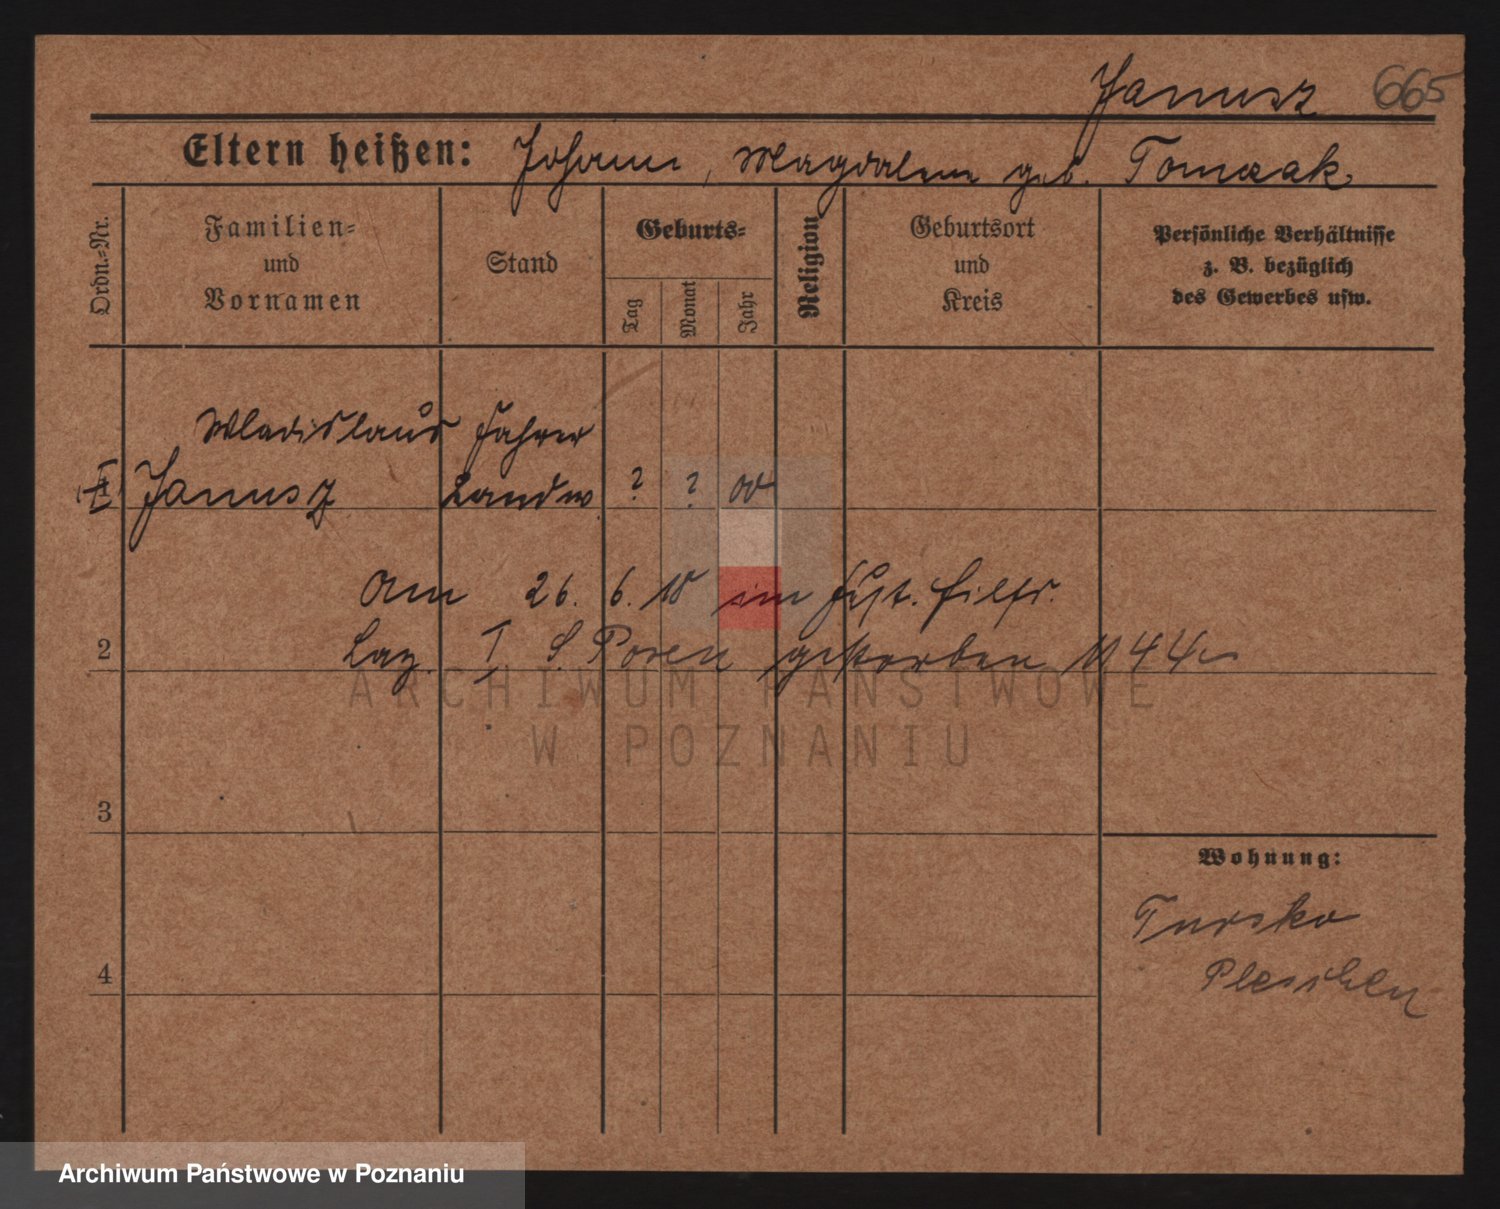 Janusz 665
Eltern heißen: Johann, Magdalene geb. Tomczak
Ordn.-Nr.
Familien-
und
Vornamen
Stand
Geburts-
Tag
Monat
Jahr
Religion
Geburtsort
und
Kreis
Persönliche Verhältnisse
z. B. bezüglich
des Gewerbes usw.
Wladislaus Fahrer
Janusz Landw. ? ?
Am 26. 6. 18 im Fest. Hilfs.
2 Laz. I Posen gestorben
3
4
Wohnung:
Tursko
Pleschen
ARCHIWUM PAŃSTWOWE
W POZNANIU
Archiwum Państwowe w Poznaniu